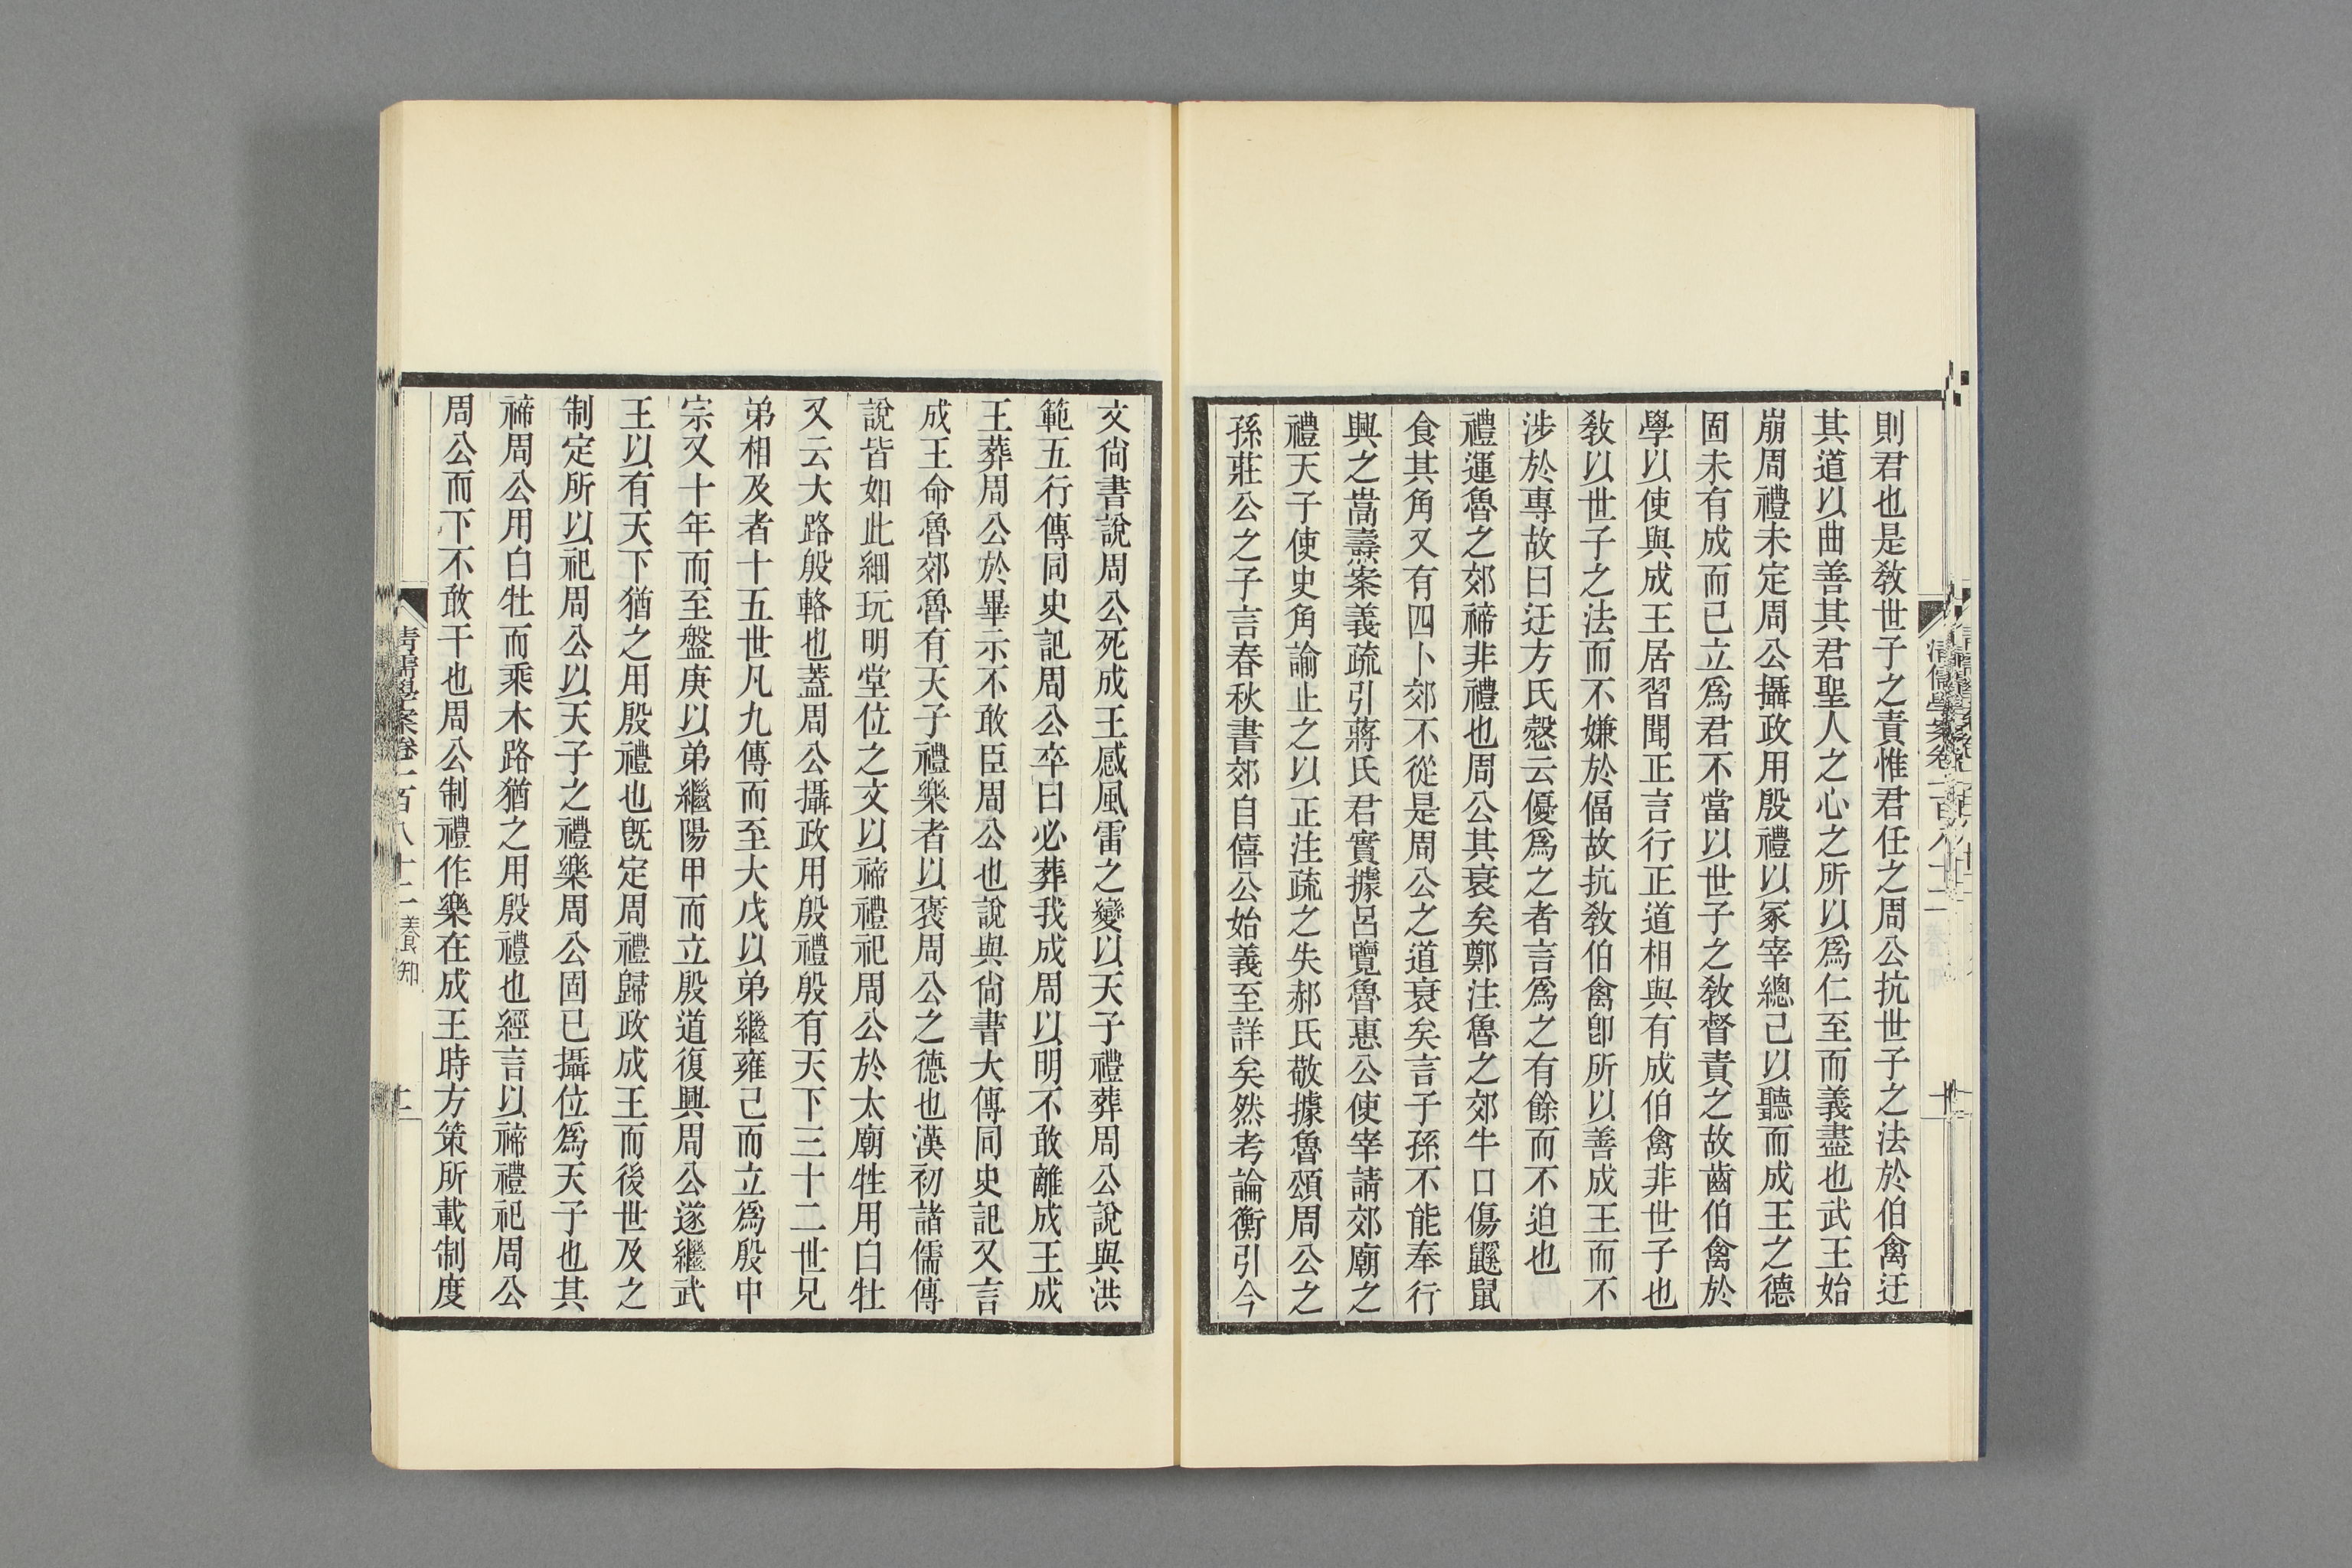 則君也是敎世子之責惟君任之周公抗世子之法於伯禽迂
其道以曲善其君聖人之心之所以爲仁至而義盡也武王始
崩周禮未定周公攝政用殷禮以冢宰總己以聽而成王之德
固未有成而已立爲君不當以世子之敎督責之故齒伯禽於
學以使與成王居習聞正言行正道相與有成伯禽非世子也
敎以世子之法而不嫌於偪故抗敎伯禽卽所以善成王而不
涉於專故曰迂方氏愨云優爲之者言爲之有餘而不迫也
禮運魯之郊禘非禮也周公其衰矣鄭注魯之郊牛口傷鼷鼠
食其角又有四卜郊不從是周公之道衰矣言子孫不能奉行
興之嵩燾案義疏引蔣氏君實據呂覽魯惠公使宰請郊廟之
禮天子使史角諭止之以正注疏之失郝氏敬據魯頌周公之
孫莊公之子言春秋書郊自僖公始義至詳矣然考論衡引今
文尙書說周公死成王感風雷之變以天子禮葬周公說與洪
範五行傳同史記周公卒曰必葬我成周以明不敢離成王成
王葬周公於畢示不敢臣周公也說與尙書大傳同史記又言
成王命魯郊魯有天子禮樂者以褒周公之德也漢初諸儒傳
說皆如此細玩明堂位之文以禘禮祀周公於太廟牲用白牡
又云大路殷輅也蓋周公攝政用殷禮殷有天下三十二世兄
弟相及者十五世凡九傳而至大戊以弟繼雍己而立爲殷中
宗又十年而至盤庚以弟繼陽甲而立殷道復興周公遂繼武
王以有天下猶之用殷禮也旣定周禮歸政成王而後世及之
制定所以祀周公以天子之禮樂周公固已攝位爲天子也其
禘周公用白牡而乘木路猶之用殷禮也經言以禘禮祀周公
周公而下不敢干也周公制禮作樂在成王時方策所載制度
清儒學案卷一百八十二 養知